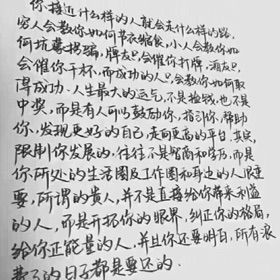 你接近什么样的人就会走什么样的路,
穷人会教你如何节衣缩食,小人会教你如
何坑蒙拐骗,牌友只会催你打牌,酒友只
会催你干杯,而成功的人只会教你如何取
得成功、人生最大的运气,不是捡钱也不是
中奖,而是有人可以鼓励你,指引你,帮助
你,发现更好的自己,走向更高的平台,其实,
限制你发展的,往往不是智商和学历,而是
你所处的生活圈及工作圈和身边的人很重
要,所谓的贵人,并不是直接给你带来利益
的人,而是开拓你的眼界,纠正你的格局,
给你正能量的人,并且你还要明白,所有浪
费了的日子都是要还的.